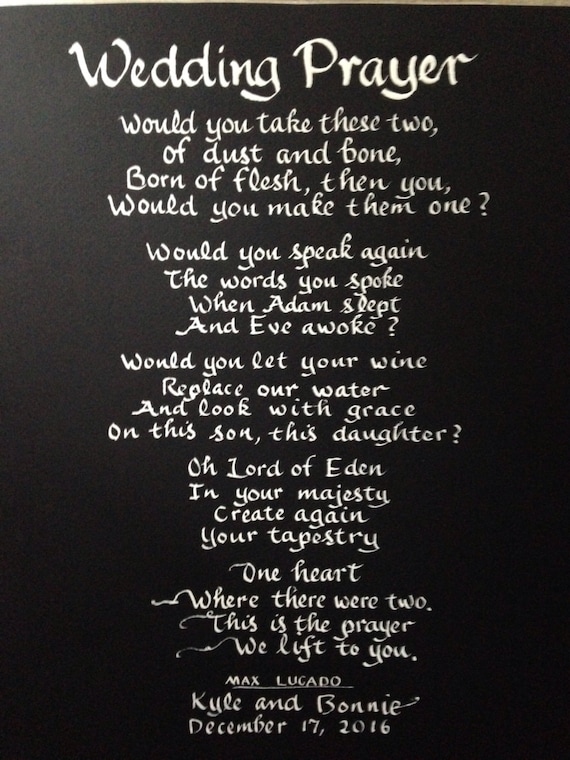 Wedding Prayer
Would you take these two,
Of dust and bone,
Born of flesh, then you,
Would you make them one?
Would you speak again
The words you spoke
When Adam slept
And Eve awoke?
Would you let your wine
Replace our water
And look with grace
On this son, this daughter?
Oh Lord of Eden
In your majesty
Create again
Your tapestry
One heart
Where there were two.
This is the prayer
We lift to you.
MAX LUCADO
Kyle and Bonnie
December 17, 2016